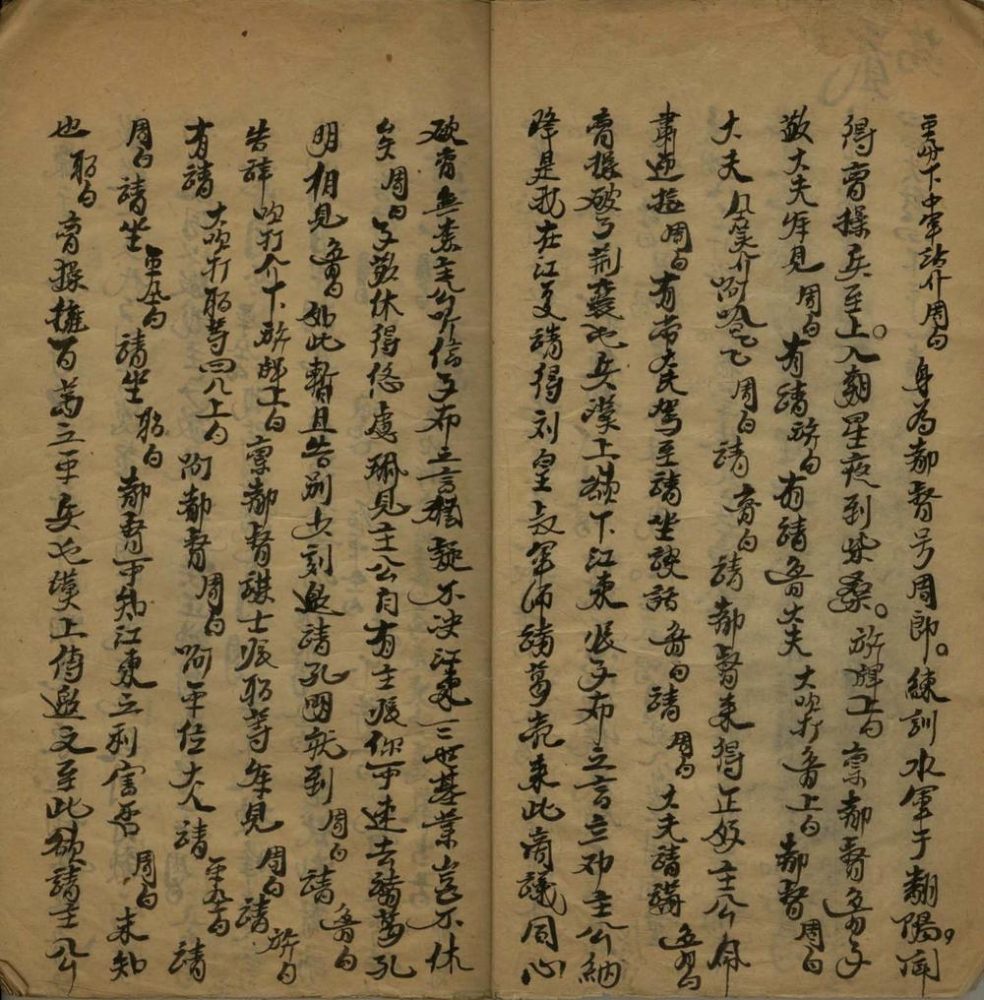 下中軍 介 周白 身為都督号周郎。練訓水軍于翻陽,聞
得曹操兵至上。入朝星夜到柴桑。旂牌上白 禀都督魯子
敬大夫在見 周白 有請 旂白 有請魯大夫 大吹打魯上白 都督 周白
大夫 介 呵哈 周白 請 魯白 請都督来得正好主公命
肅迎接 周白 有常大夫駕至請坐談話 魯白 請 周白 大夫請講 魯白
曹操破了荆襄屯兵漢上欲下江東張子布立言立劝主公納
降是我在江夏請得刘皇叔軍师諸葛亮来此商議同心
破曹無柰主公听信子布之言猶疑不决江東三世基業豈不休
矣 周白 子敬休得悠慮 見主公自有主張你可速去請葛孔
明相見 魯白 如此暫且告别去刻邀請孔明就到 周白 請 魯白
告辞 吹打介下 旂牌上白 禀都督謀士張昭等在見 周白 請 旂白
有請 大吹打昭等四人上白 呵都督 周白 呵平位大人請 白 請
周白 請坐 白 請坐 昭白 都督可知江東之利害否 周白 未知
也 昭白 曹操擁百萬之平兵屯漢上傳邀文至此欲請主公